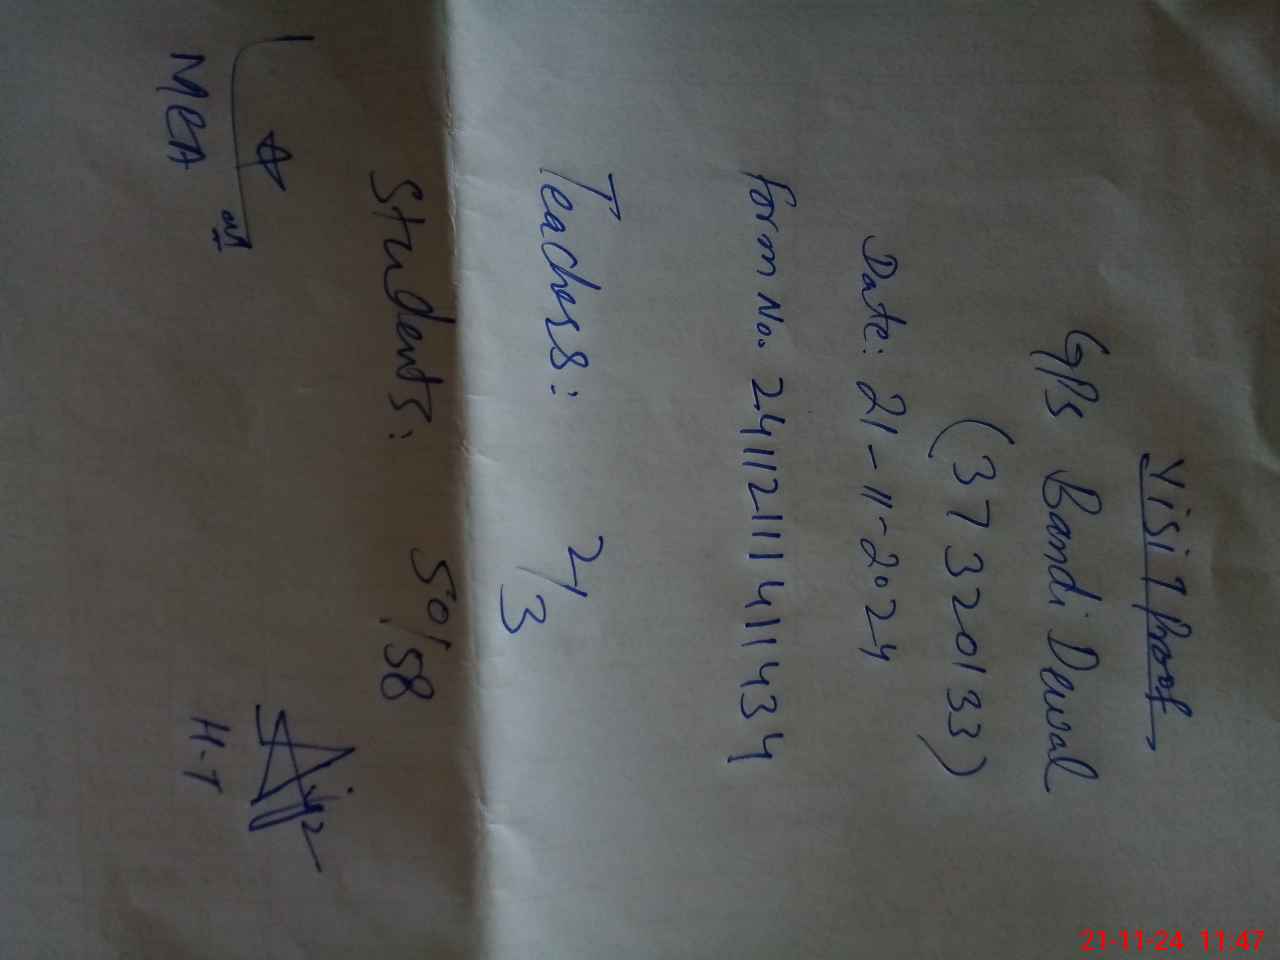 Visit Proof
GPS Bandi Dewal
(37320133)
Date: 21-11-2024
Form No. 241121114111434
Teachers: 2/3
Students: 50/58
MEA
H.T
21-11-24 11:47